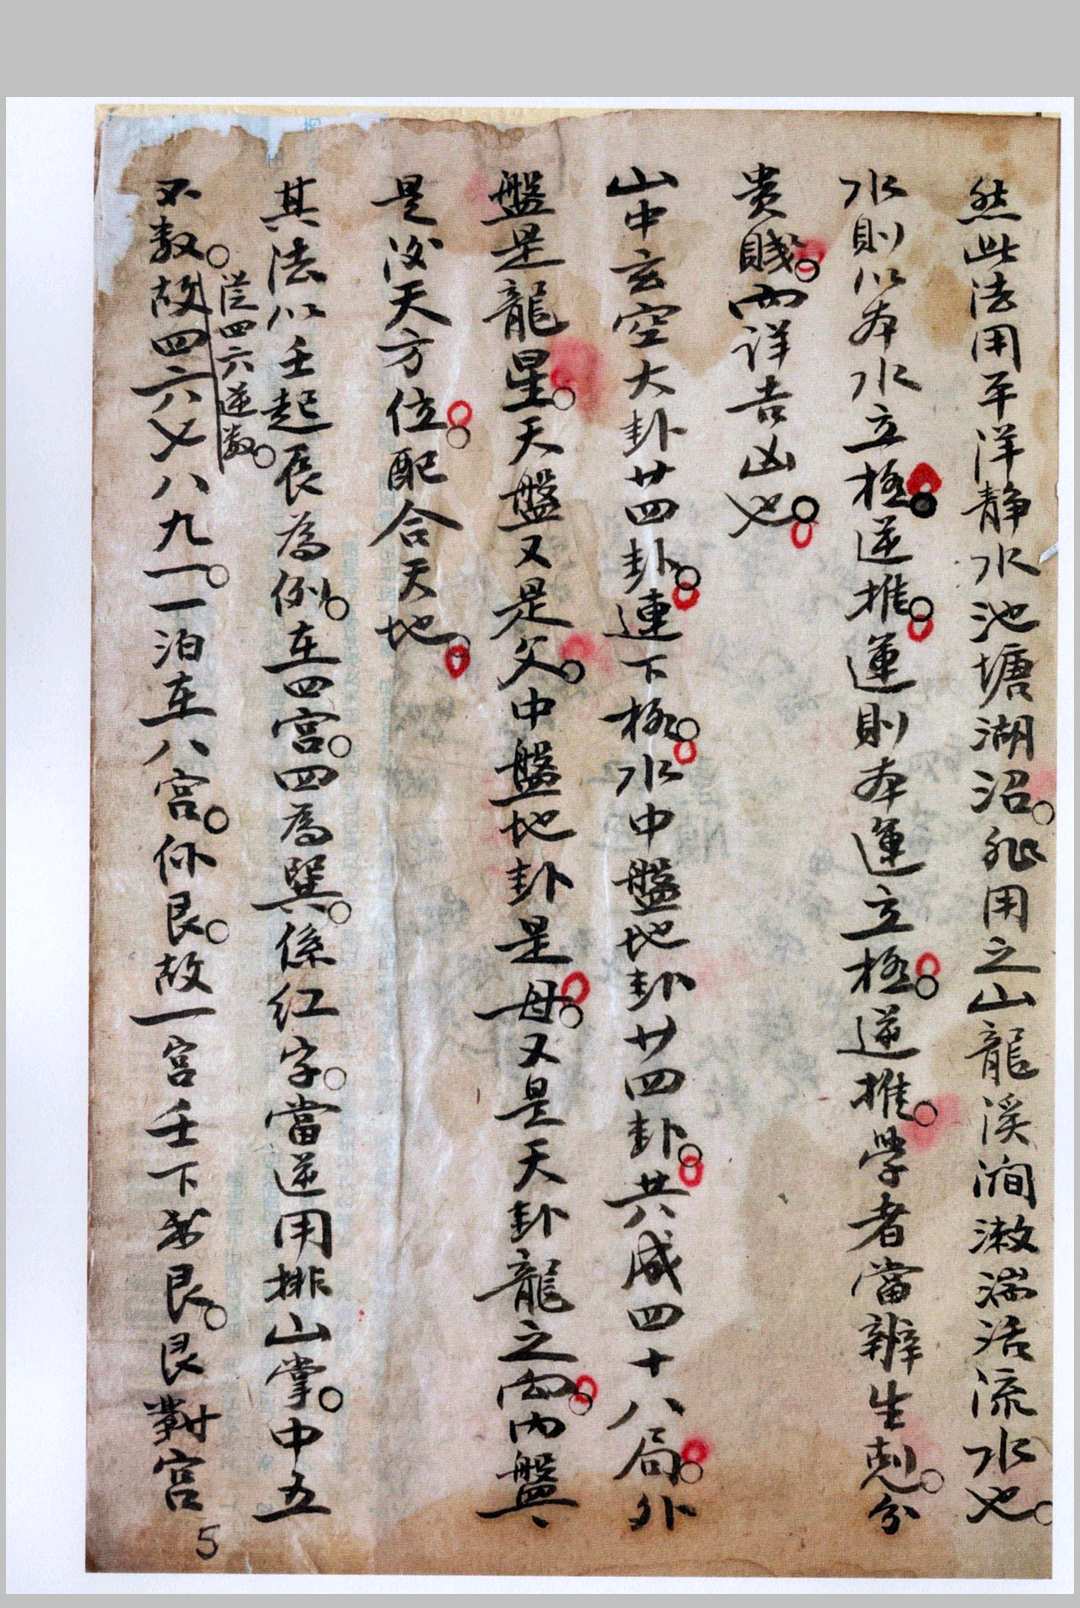 然此法用平洋静水池塘湖沼。非用之山龍溪澗激湍活流水也。
水則以本水立極。逆推。運則本運立極。逆推。學者當辨生剋。分
貴賤。而詳吉凶也。
山中玄空大卦廿四卦。連下極。水中盤地卦廿四卦。共成四十八局。外
盤是龍星。天盤又是父。中盤地卦是母。又是天卦龍之內。內盤
是後天方位。配合天地。
其法以壬起辰為例。在四宮。四為巽。係紅字。當逆用排山掌。中五
從四六逆数。
不数。故四六七八九一。一泊在八宮。係艮。故一宮壬下書艮。艮對宮
5